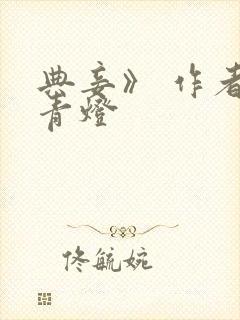 典妾》 作者
青燈
佟毓婉